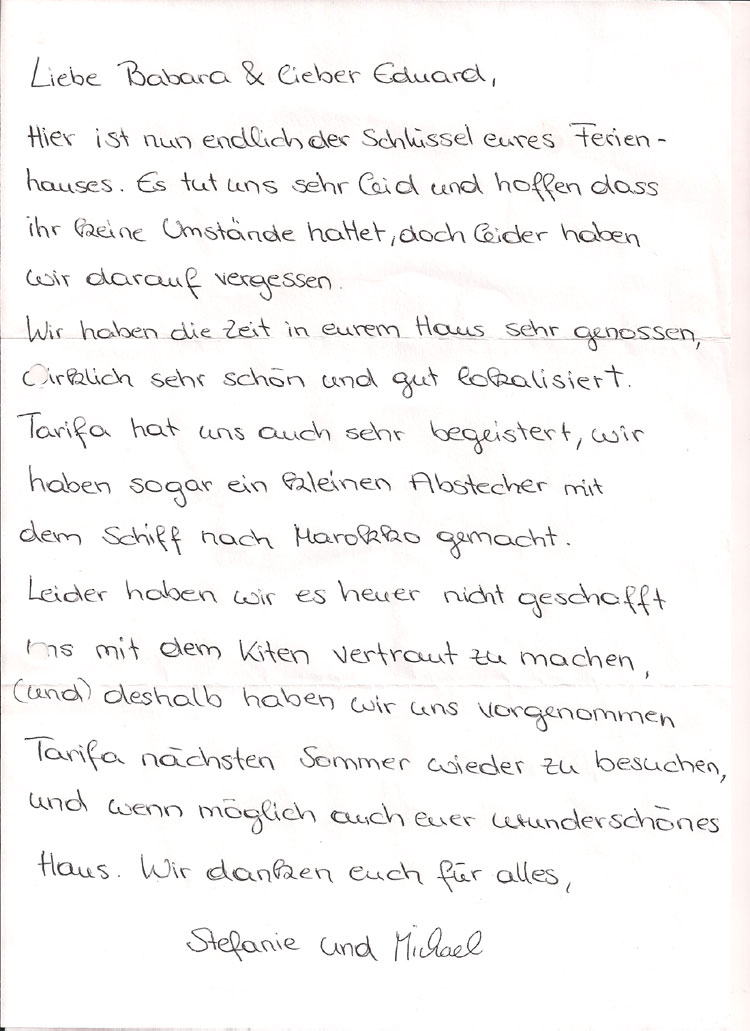 Liebe Babara & lieber Eduard,
Hier ist nun endlich der Schlüssel eures Ferien-
hauses. Es tut uns sehr leid und hoffen dass
ihr keine Umstände hattet, doch leider haben
wir darauf vergessen.
Wir haben die Zeit in eurem Haus sehr genossen,
wirklich sehr schön und gut lokalisiert.
Tarifa hat uns auch sehr begeistert, wir
haben sogar ein kleinen Abstecher mit
dem Schiff nach Marokko gemacht.
Leider haben wir es heuer nicht geschafft
uns mit dem Kiten vertraut zu machen,
(und) deshalb haben wir uns vorgenommen
Tarifa nächsten Sommer wieder zu besuchen,
und wenn möglich auch euer wunderschönes
Haus. Wir danken euch für alles,
Stefanie und Michael